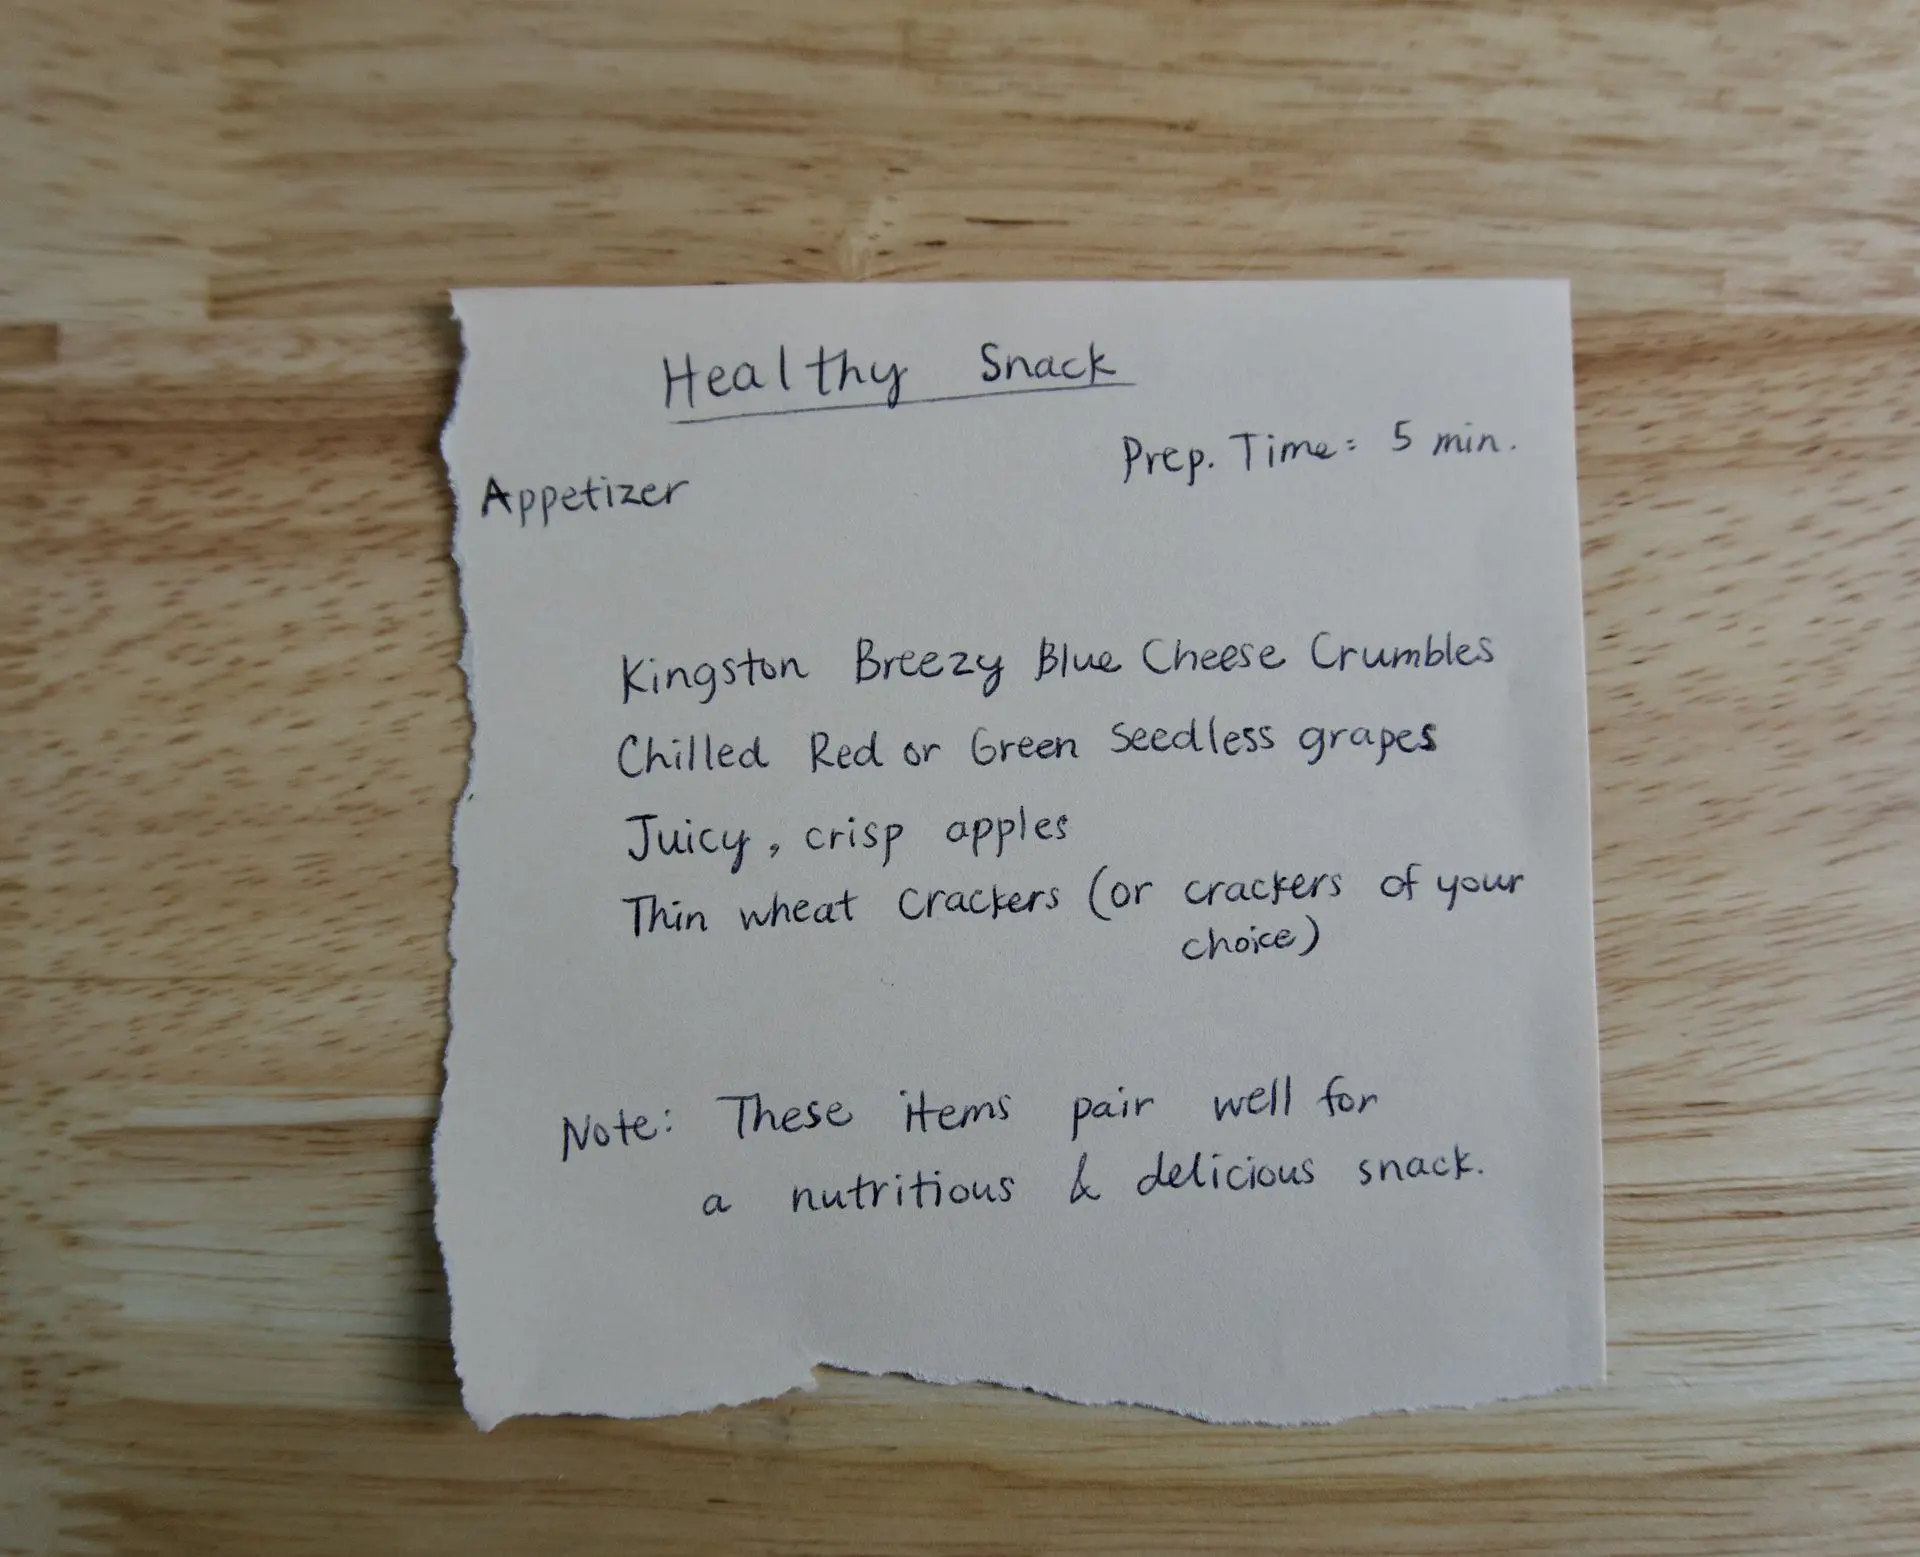 Healthy Snack
Prep. Time: 5 min.
Appetizer
Kingston Breezy Blue Cheese Crumbles
Chilled Red or Green Seedless grapes
Juicy, crisp apples
Thin wheat Crackers (or crackers of your
choice)
Note: These items pair well for
a nutritious & delicious snack.